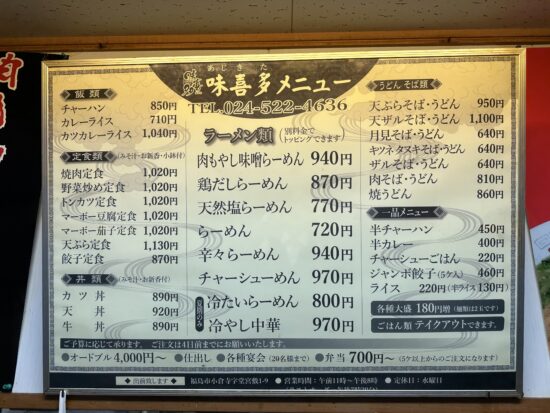 あじきた
味喜多メニュー
TEL.024-522-4636
飯類
チャーハン 850円
カレーライス 710円
カツカレーライス 1,040円
定食類 (みそ汁・お新香・小鉢付)
焼肉定食 1,020円
野菜炒め定食 1,020円
トンカツ定食 1,020円
マーボー豆腐定食 1,020円
マーボー茄子定食 1,020円
天ぷら定食 1,130円
餃子定食 870円
丼類 (みそ汁・お新香付)
カツ丼 890円
天丼 920円
牛丼 890円
ラーメン類 (別料金でトッピングできます)
肉もやし味噌らーめん 940円
鶏だしらーめん 870円
天然塩らーめん 770円
らーめん 720円
辛々らーめん 940円
チャーシューめん 970円
夏期のみ
冷たいらーめん 800円
冷やし中華 970円
うどん そば類
天ぷらそば・うどん 950円
天ザルそば・うどん 1,100円
月見そば・うどん 640円
キツネ タヌキそば・うどん 640円
ザルそば・うどん 640円
肉そば・うどん 810円
焼うどん 860円
一品メニュー
半チャーハン 450円
半カレー 400円
チャーシューごはん 220円
ジャンボ餃子(5ケ入) 460円
ライス 220円 (半ライス130円)
各種大盛 180円増 (麺類は2玉です)
ごはん類 テイクアウトできます。
ご予算に応じて承ります。ご注文は4日前までにお願いいたします。
●オードブル 4,000円〜 ●仕出し ●各種宴会(20名様まで) ●弁当 700円〜(5ケ以上からのご注文になります)
■出前致します 福島市小倉寺字堂宮敷1-9 ●営業時間:午前11時〜午後8時 ●定休日:水曜日